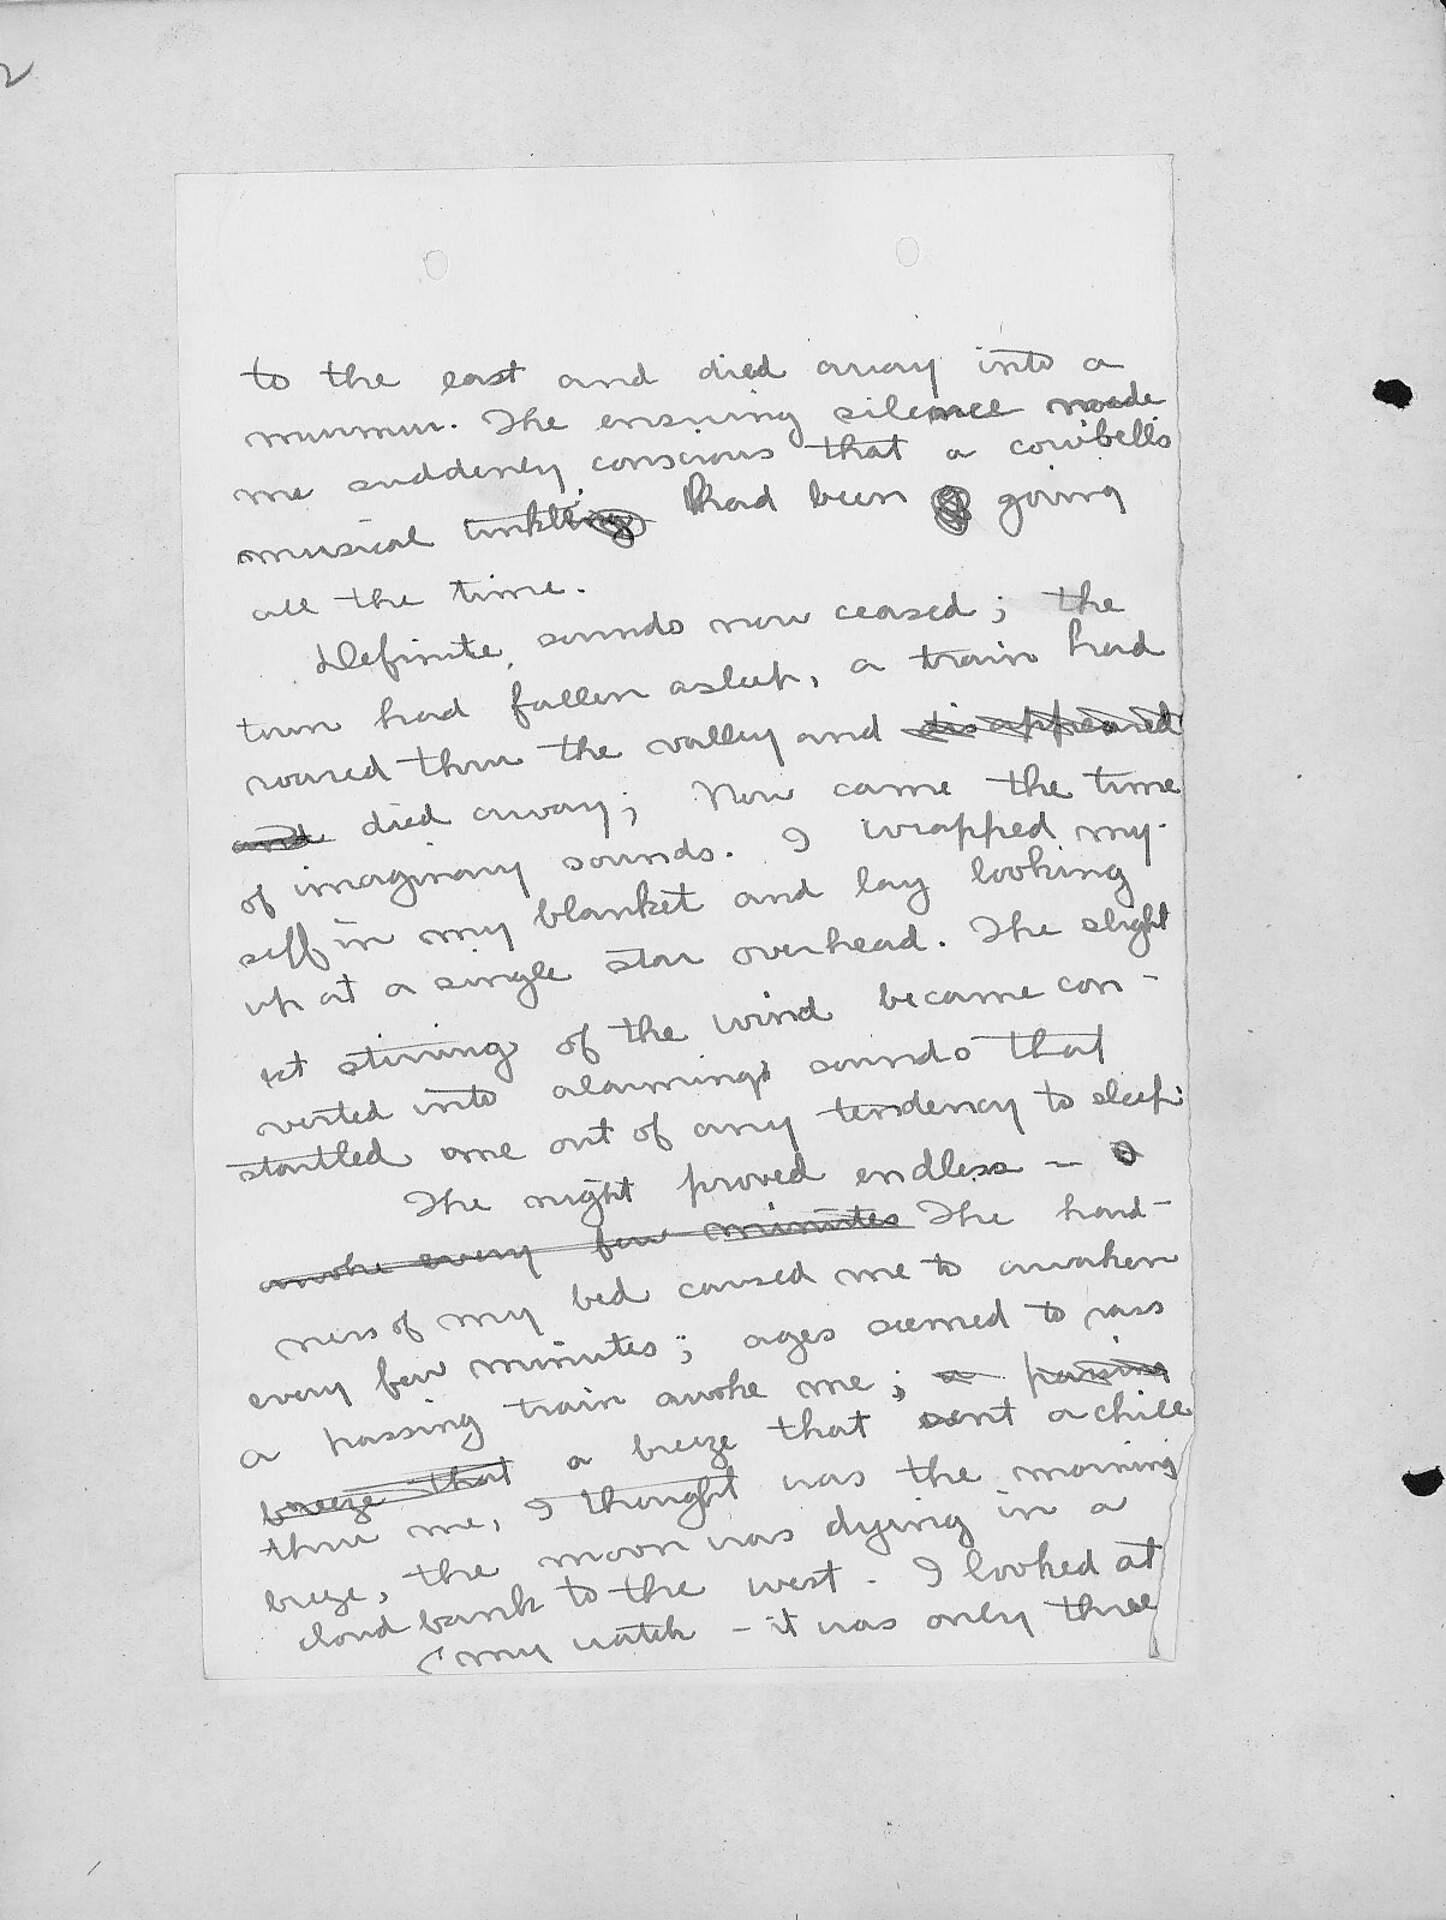 2
to the east and died away into a
murmur. The ensuing silence made
me suddenly conscious that a cowbell's
musical tinkling had been going
all the time.
Definite sounds now ceased; the
town had fallen asleep, a train had
roared thru the valley and disappeared
and died away; Now came the time
of imaginary sounds. I wrapped my-
self in my blanket and lay looking
up at a single star overhead. The slight
est stirring of the wind became con-
verted into alarming sounds that
startled me out of any tendency to sleep.
The night proved endless – I
awoke every few minutes The hard-
ness of my bed caused me to awaken
every few minutes; ages seemed to pass
a passing train awoke me; a passing
breeze that a breeze that sent a chill
thru me, I thought was the morning
breeze, the moon was dying in a
cloud bank to the west. I looked at
my watch – it was only three